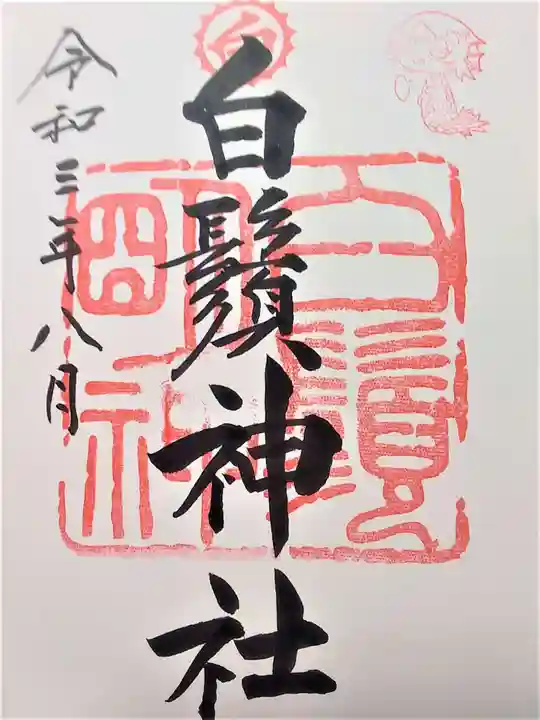 白鬚神社
令和三年八月
白